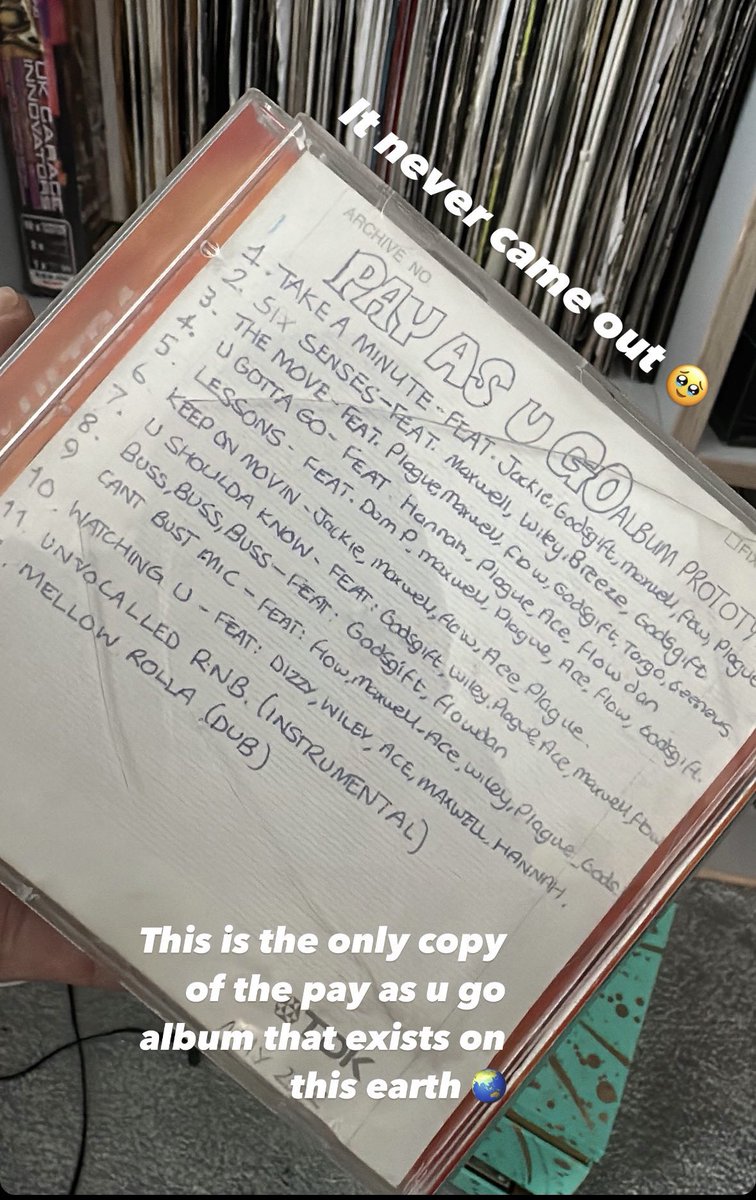 UK GARAGE
INNOVATORS
It never came out 🥹
ARCHIVE NO
PAY AS U GO ALBUM PROTOTY
1. TAKE A MINUTE - FEAT. Jackie, Godsgift, Maxwell, Flow, Plague
2. SIX SENSES - FEAT. Maxwell, Wiley, Breeze, Godsgift
3. THE MOVE - FEAT. Plague, Maxwell, Flow, Godsgift, Targo, Geeneus
4. U GOTTA GO - FEAT. Hannah, Plague, Ace, Flow dan
5. LESSONS - FEAT. Dom P. Maxwell, Plague, Ace, Flow, Godsgift.
6 KEEP ON MOVIN - Jackie, Maxwell, Flow, Ace, Plague
7. U SHOULDA KNOW - FEAT: Godsgift, Wiley, Plague, Ace, Maxwell, Flow
8. BUSS, BUSS, BUSS - FEAT: Godsgift, Flowdan
9 CANT BUST MIC - FEAT: Flow, Maxwell, Ace, Wiley, Plague, Gods
10. WATCHING U - FEAT: DIZZY, WILEY, ACE, MAXWELL, HANNAH.
11. UNVOCALLED R.N.B. (INSTRUMENTAL)
. MELLOW ROLLA (DUB)
TDK
MAY
This is the only copy
of the pay as u go
album that exists on
this earth 🌏